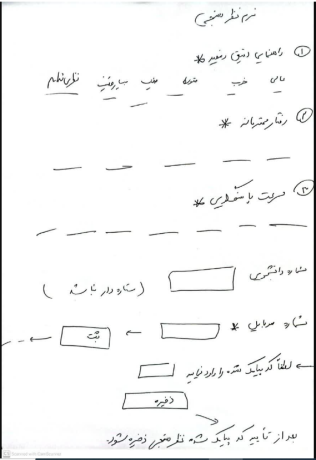 فرم نظر سنجی
① راهنمایی دقیق و مفید *
عالی خوب متوسط
② رفتار محترمانه *
③ سرعت پاسخگویی *
شماره دانشجویی (ستاره دار نباشد)
شماره موبایل * ← ثبت ←
← لطفا کد پیامک شده را وارد نمایید
ذخیره
بعد از تایید کد پیامک شده نظر سنجی ذخیره شود.